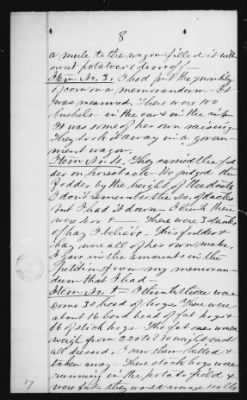 8
a mule to the wagon filled it with
sweet potatoes & drove off—
Item No. 3. I had put the quantity
of corn on a memorandum— It
was measured. There were 100
bushels in the ear & in the crib
It was some of her own raising
They took it away in a govern
ment wagon.
Item No. 4. They carried the fod
der on horseback. We judged the
fodder by the height of the stacks
I don't remember the no. of stacks
but I had it down I think there
were 4 or 5. There were 3 stacks
of hay I believe. This fodder &
hay were all of her own make.
I gave in the amounts in the
petition from my memoran-
dum that I had.
Item No. 5— I think there were
some 30 head of hogs. There were
about 16 head of fat hogs &
16 of stock hogs. The fat ones would
weigh from 220 to
all dressed. I saw them killed &
taken away. These stock hogs were
running in the potato field &
were fat they would average
17